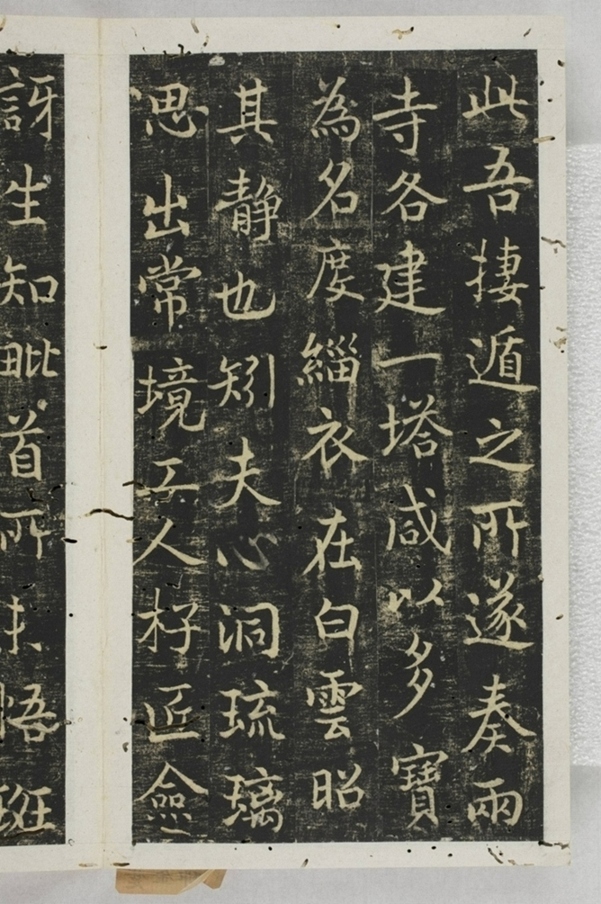 此吾捿遁之所遂奏兩
寺各建一塔咸以多寶
為名度緇衣在白雲昭
其静也矧夫心洞琉璃
思出常境工人杍匠僉
訝生知毗首所未悟班